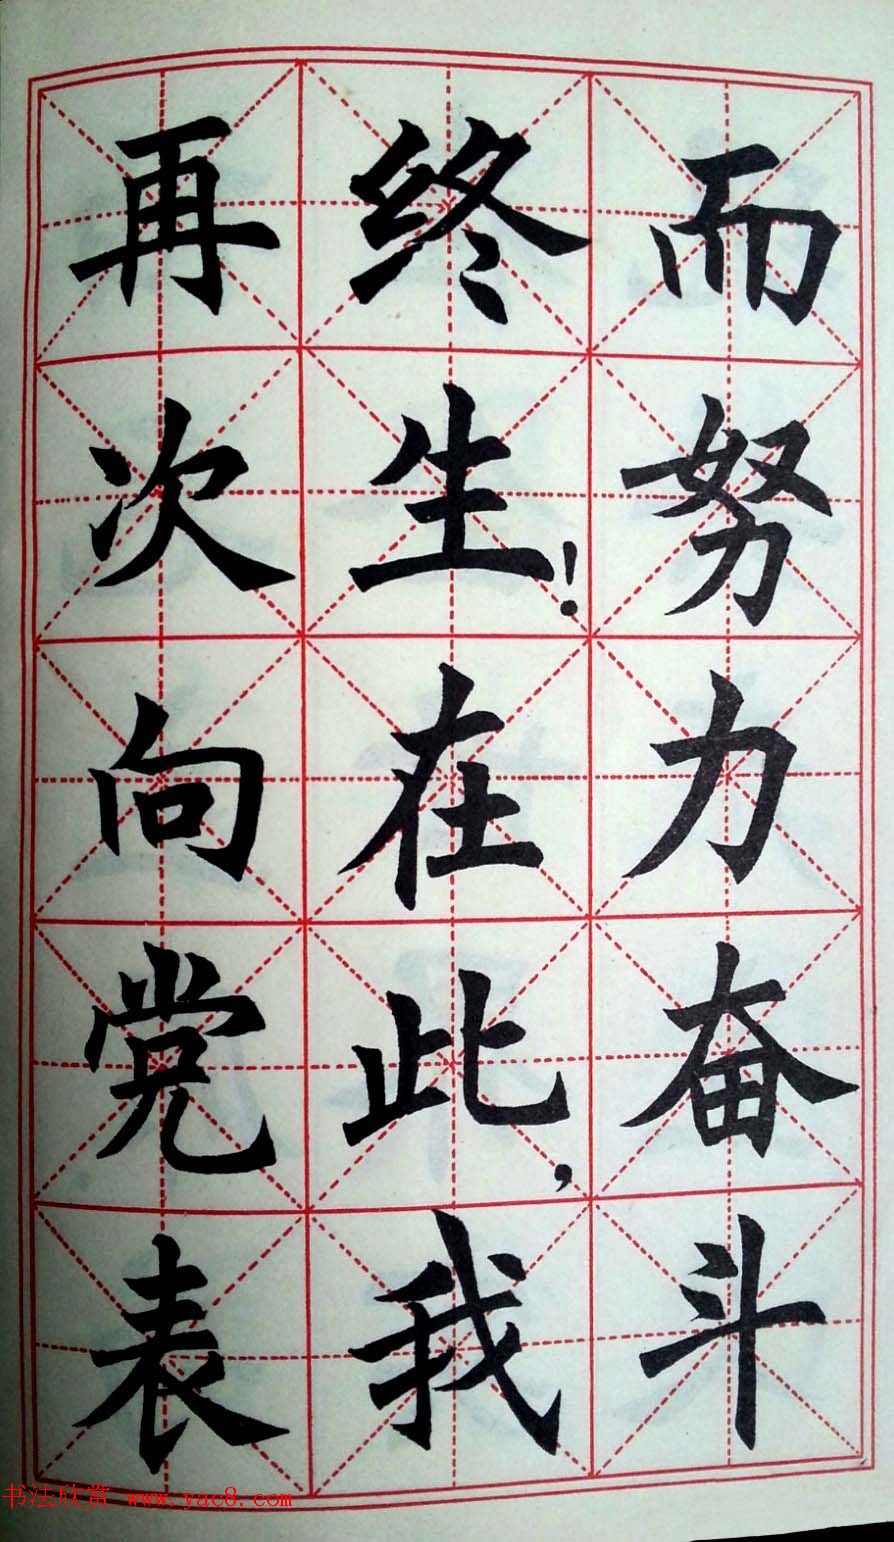 而努力奋斗
终生！在此，我
再次向党表
书法欣赏 www.yac8.com